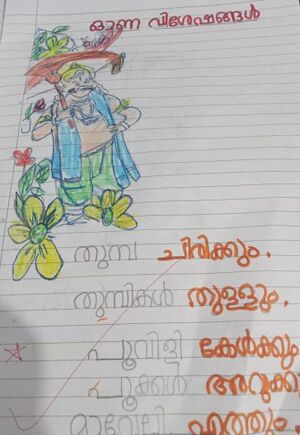 ഓണ വിശേഷങ്ങൾ
തുമ്പ ചിരിക്കും.
തുമ്പികൾ തുള്ളും.
പൂവിളി കേൾക്കും
പൂക്കൾ
മാവേലി എത്തും.